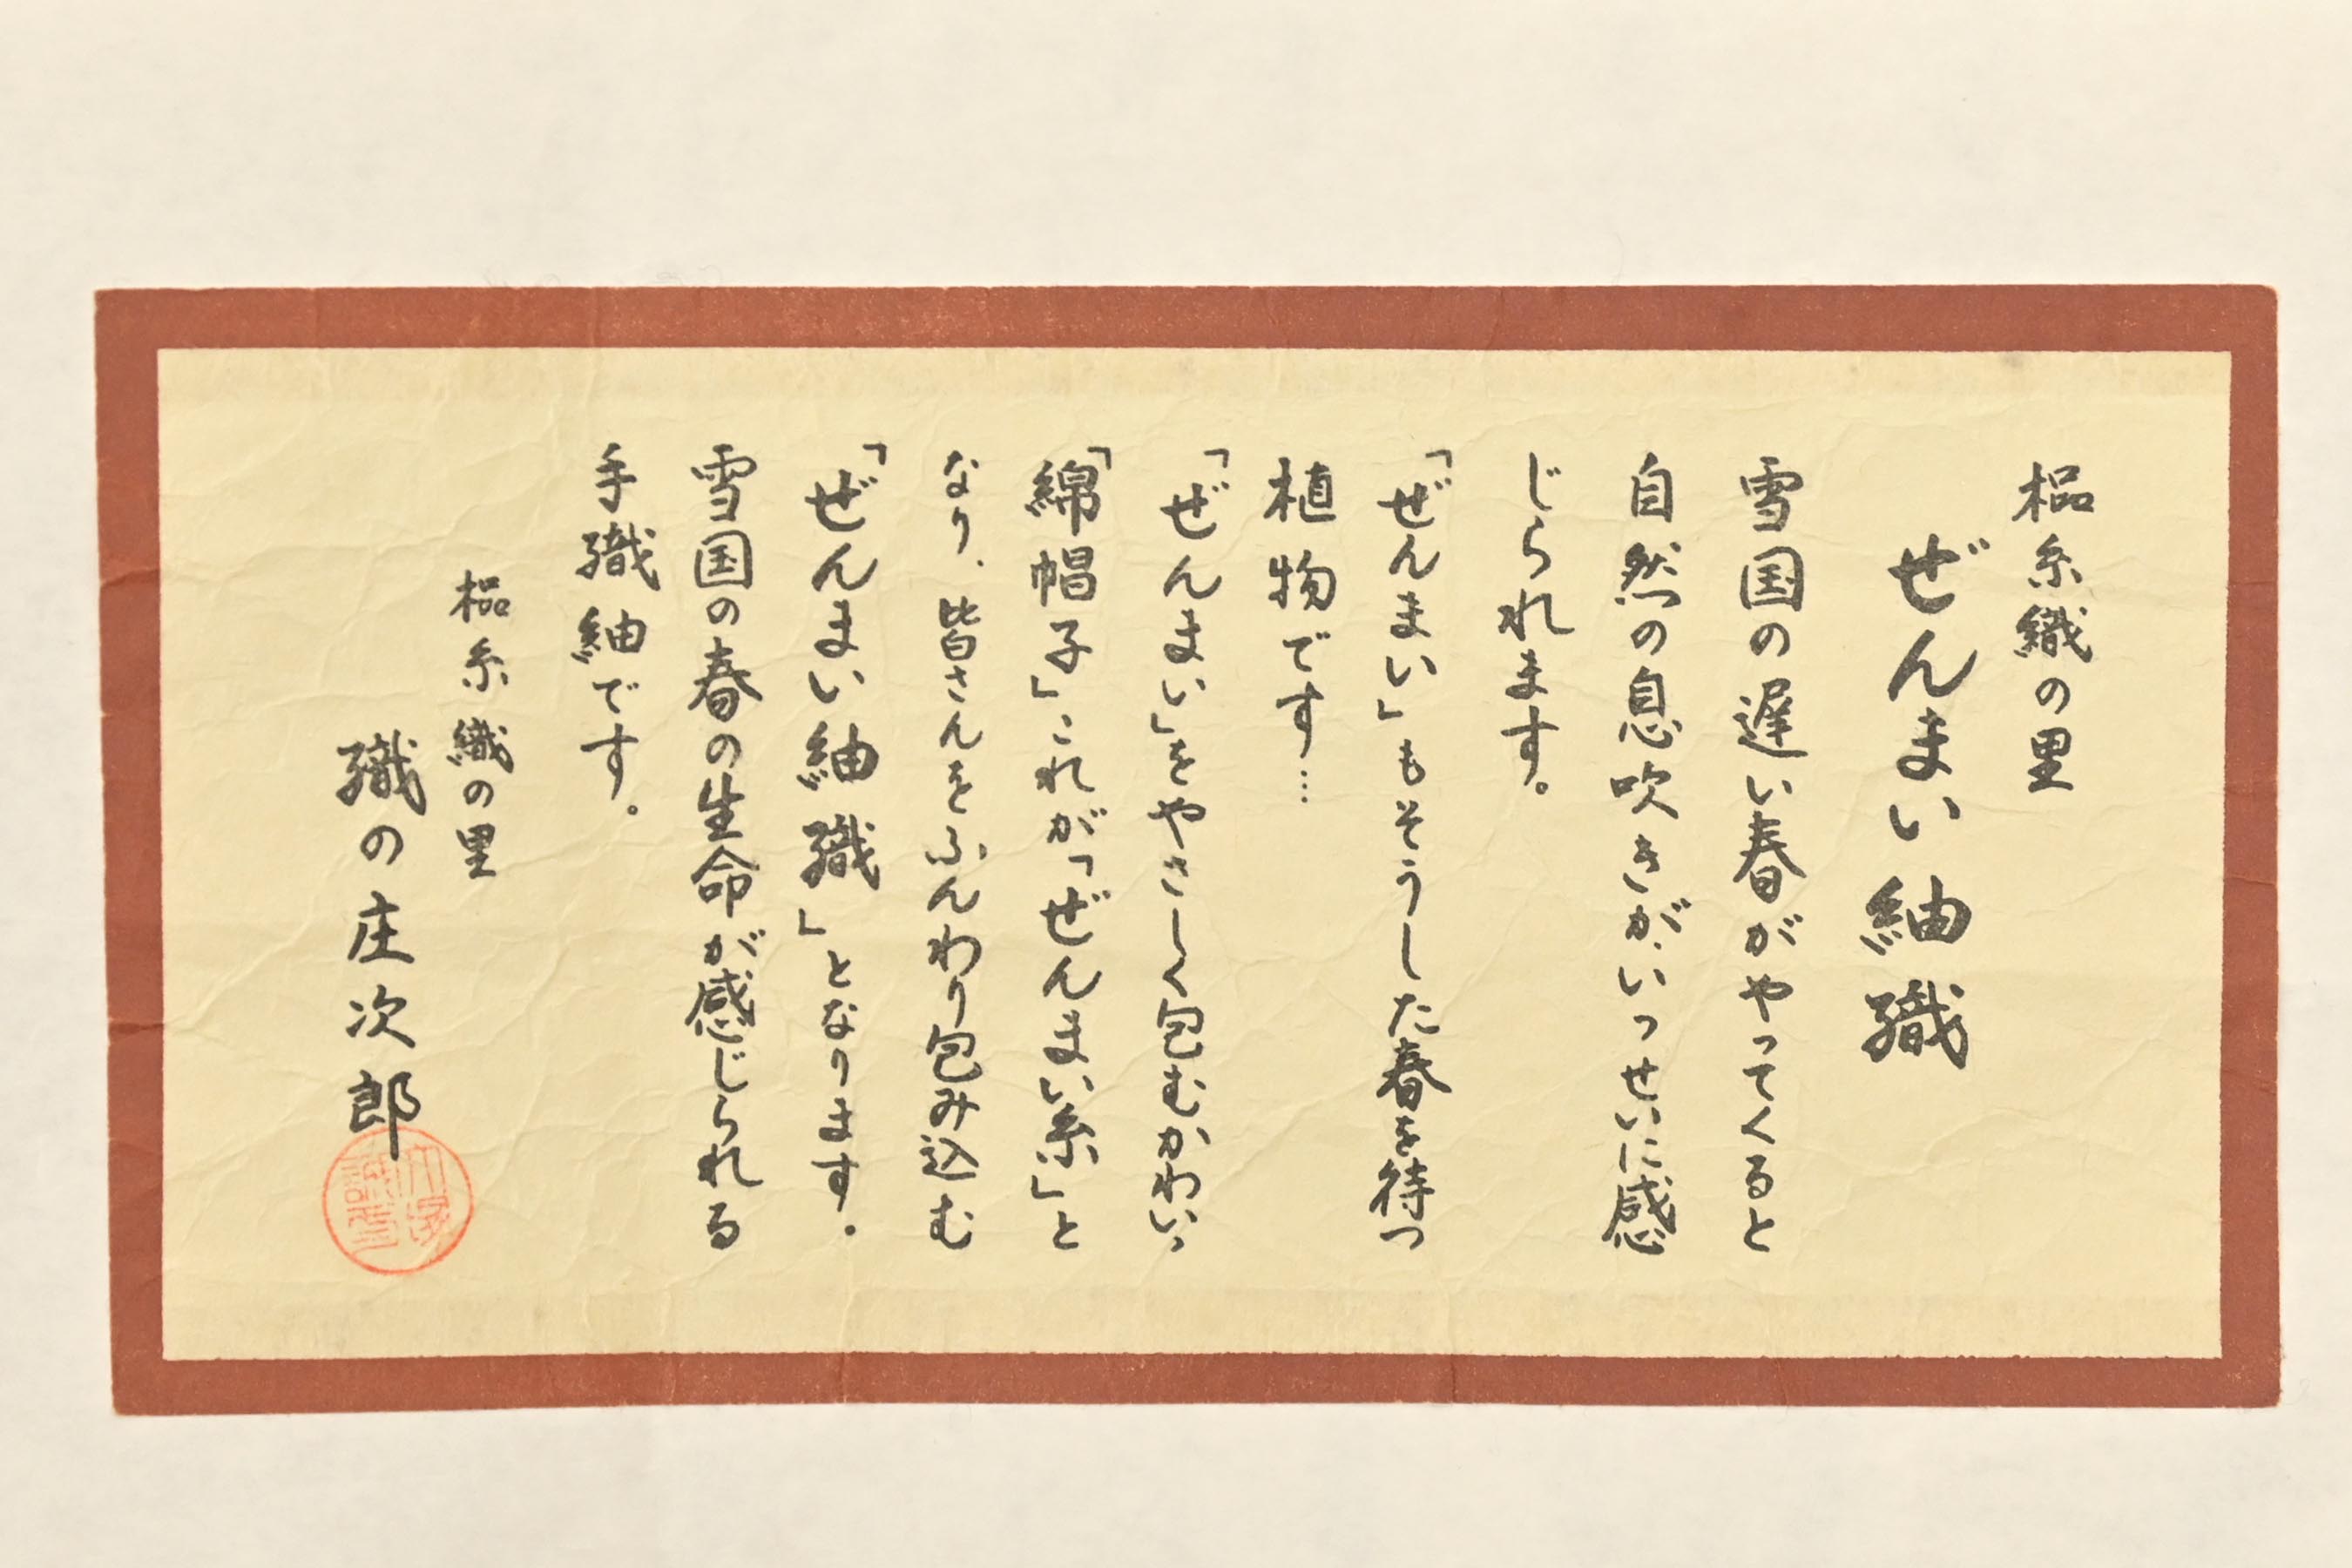 榀糸織の里
ぜんまい紬織
雪国の遅い春がやってくると
自然の息吹きがいっせいに感
じられます。
「ぜんまい」もそうした春を待つ
植物です…
「ぜんまい」をやさしく包むかわいい
「綿帽子」これが「ぜんまい糸」と
なり、皆さんをふんわり包み込む
「ぜんまい紬織」となります。
雪国の春の生命が感じられる
手織紬です。
榀糸織の里
織の庄次郎